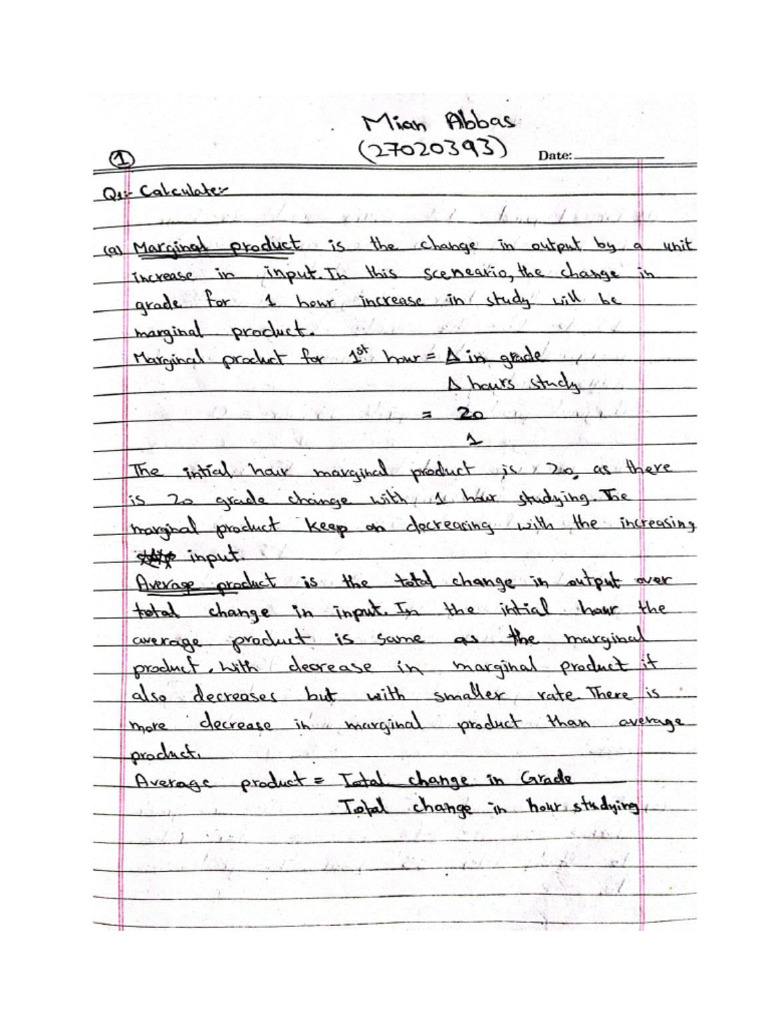 Mian Abbas
(27020393) Date:
①
Q1:- Calculate:-
(a) Marginal product is the change in output by a unit
increase in input. In this sceneario, the change in
grade for 1 hour increase in study will be
marginal product.
Marginal product for 1st hour = Δ in grade
Δ hours study
= 20
1
The intial hour marginal product is 20, as there
is 20 grade change with 1 hour studying. The
marginal product keep on decreasing with the increasing
input.
Average product is the total change in output over
total change in input. In the intial hour the
average product is same as the marginal
product. With decrease in marginal product it
also decreases but with smaller rate. There is
more decrease in marginal product than average
product.
Average product = Total change in Grade
Total change in hour studying